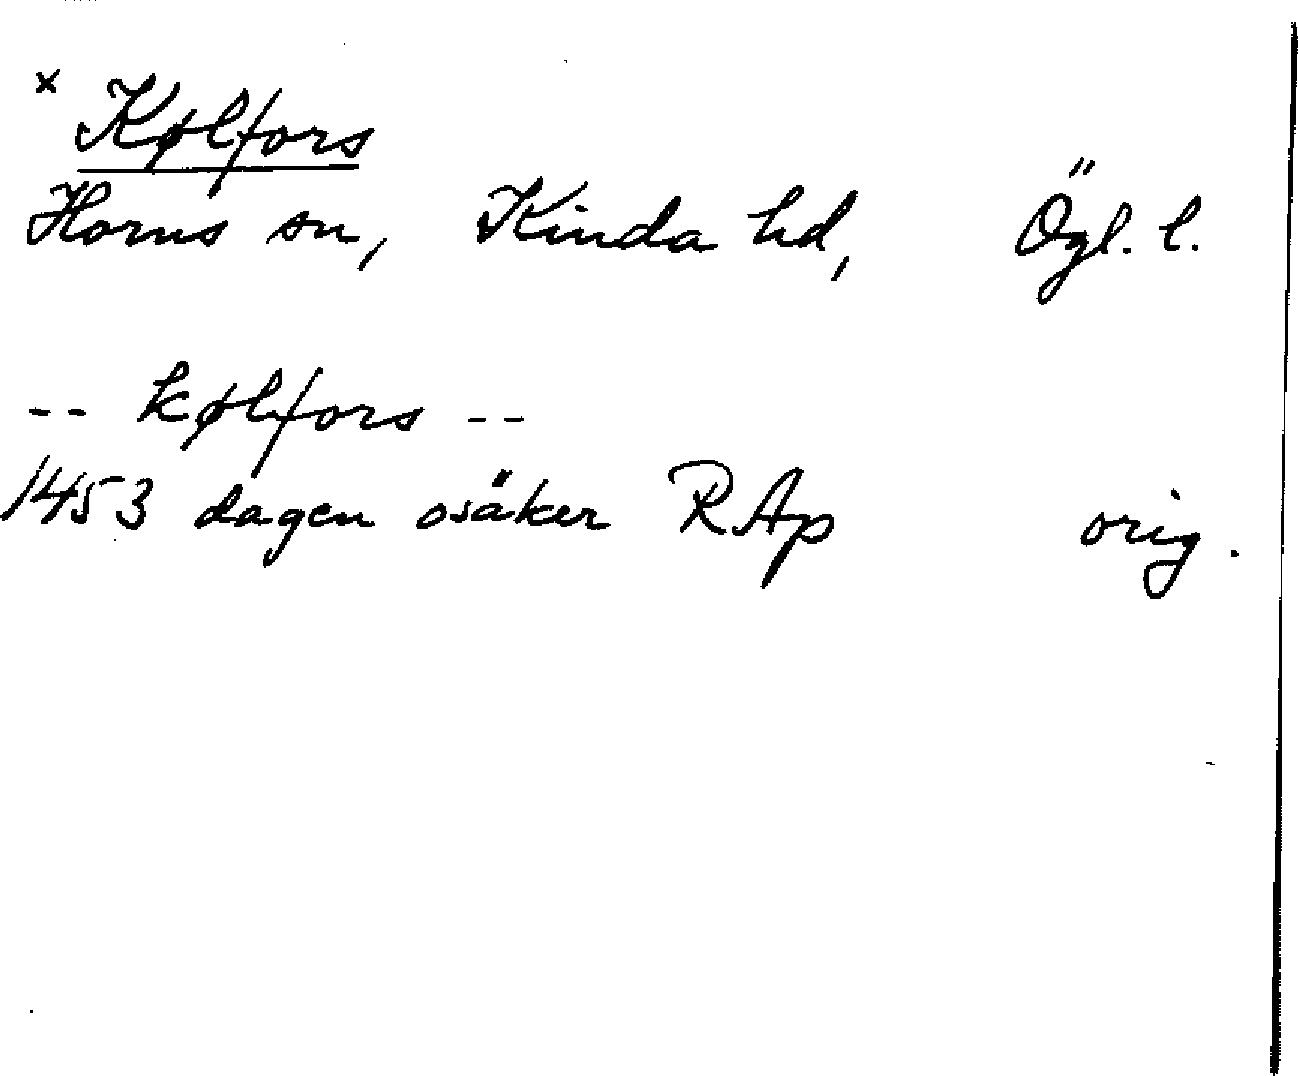 x Kølfors
Horns sn, Kinda hd, Ögl. l.
-- kølfors --
1453 dagen osäker RAp orig.